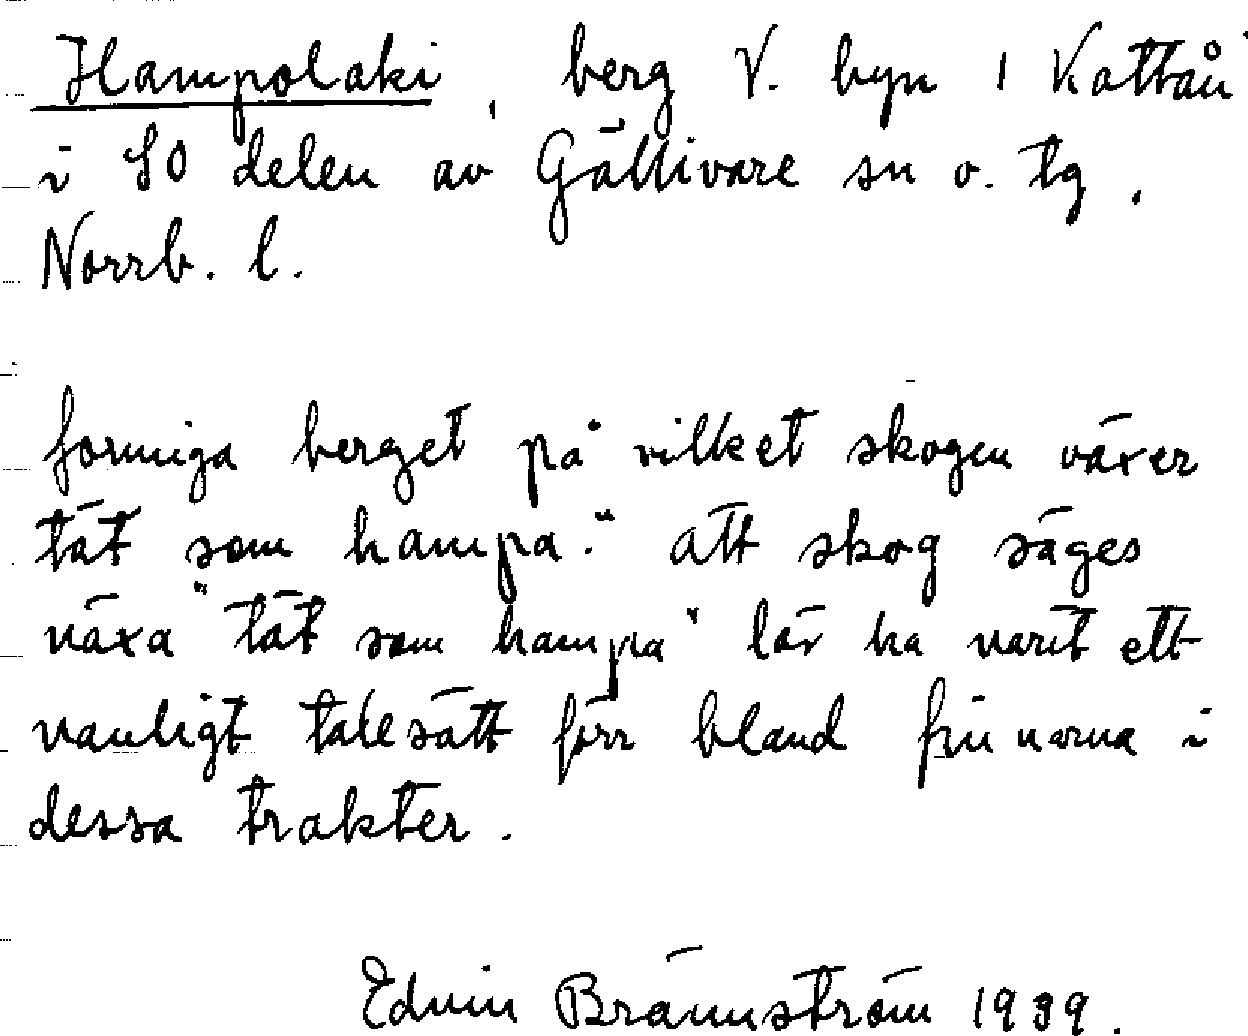 Hampolaki, berg V. byn 1 Kattån
i SO delen av Gällivare sn o. tg.
Norrb. l.
formiga berget på vilket skogen växer
tät som hampa." att skog säges
växa "tät som hampa" lär ha varit ett
vanligt talesätt förr bland finnarna i
dessa trakter.
Edvin Brännström 1939.